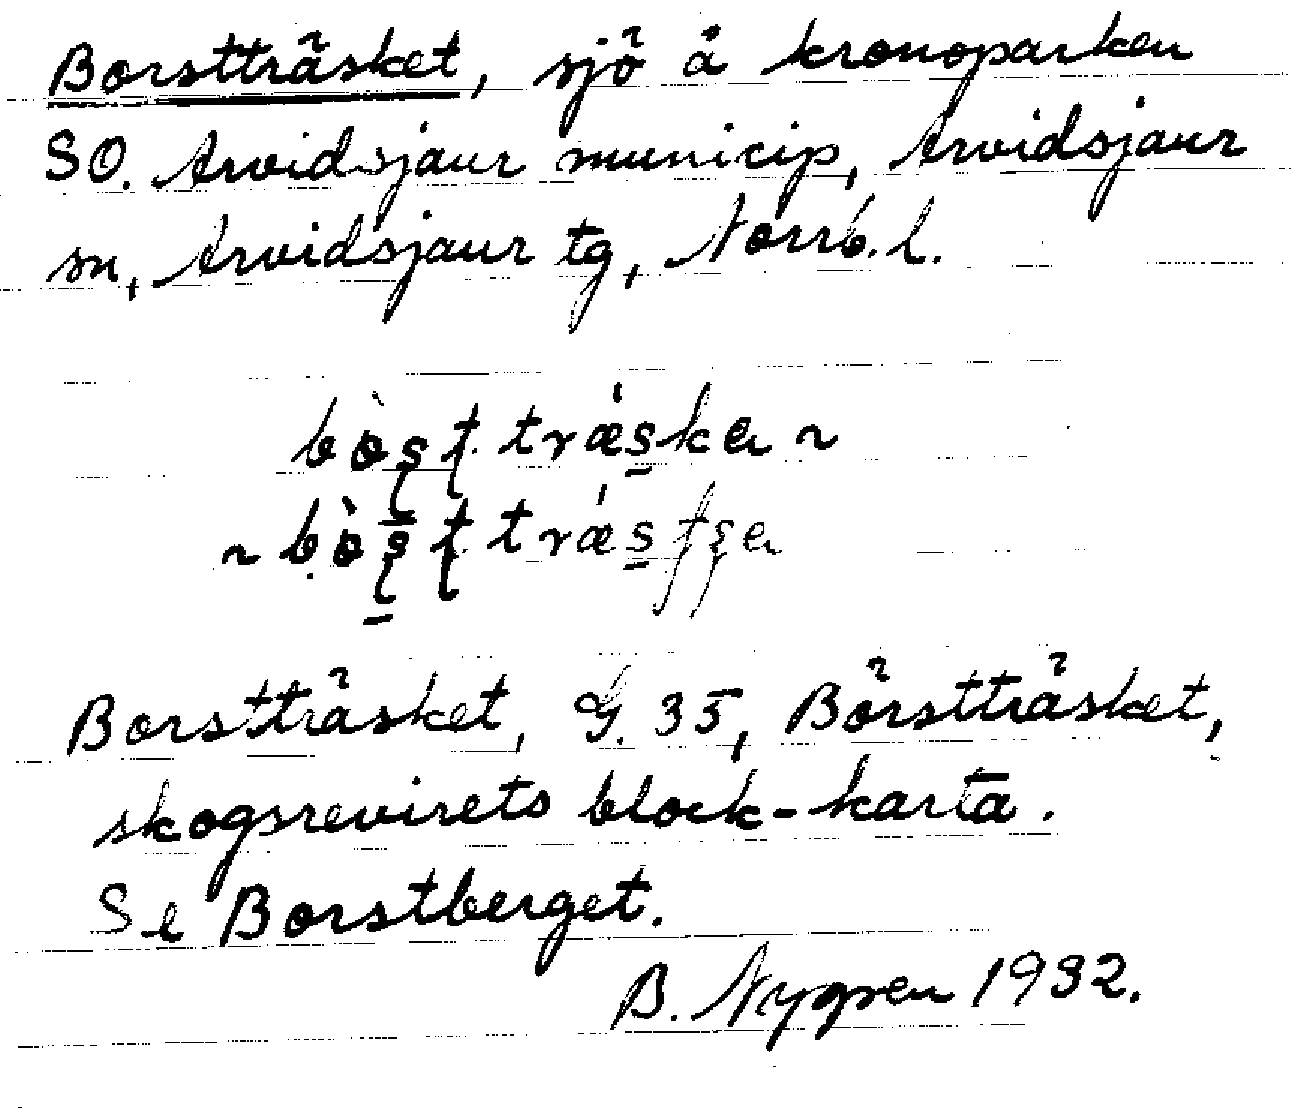 Borstträsket, sjö å kronoparken
SO. Arvidsjaur municip, Arvidsjaur
sn, Arvidsjaur tg, Norrb. l.
Borstträsket, G. 35, Börstträsket,
skogsrevirets block-karta.
Se Borstberget.
B. Nygren 1932.